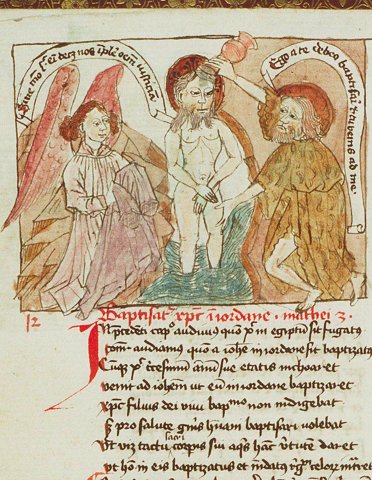 Sine mo sic ei decz nos iple oem iusticia
Ego a te debeo baptisari & tu venis ad me
12
Baptisat' xpc i iordane · mathei 3 ·
In p'cedeti cap° audiui' quo p' in egiptu sit fugat'
Con't audiam' quo a iohe in iordane sit baptizat'
Cuqz tresimu annu sue etatis inchoaret
venit ad iohem ut eu in iordane baptizaret
xpc filius dei viui bap^mo non indigebat
s' pro salute gnis humani baptisari volebat
vt vz tactu sacri corpis sui aqs hac v'tute daret
vt ho in eis baptizatus et mudat' celorz intret